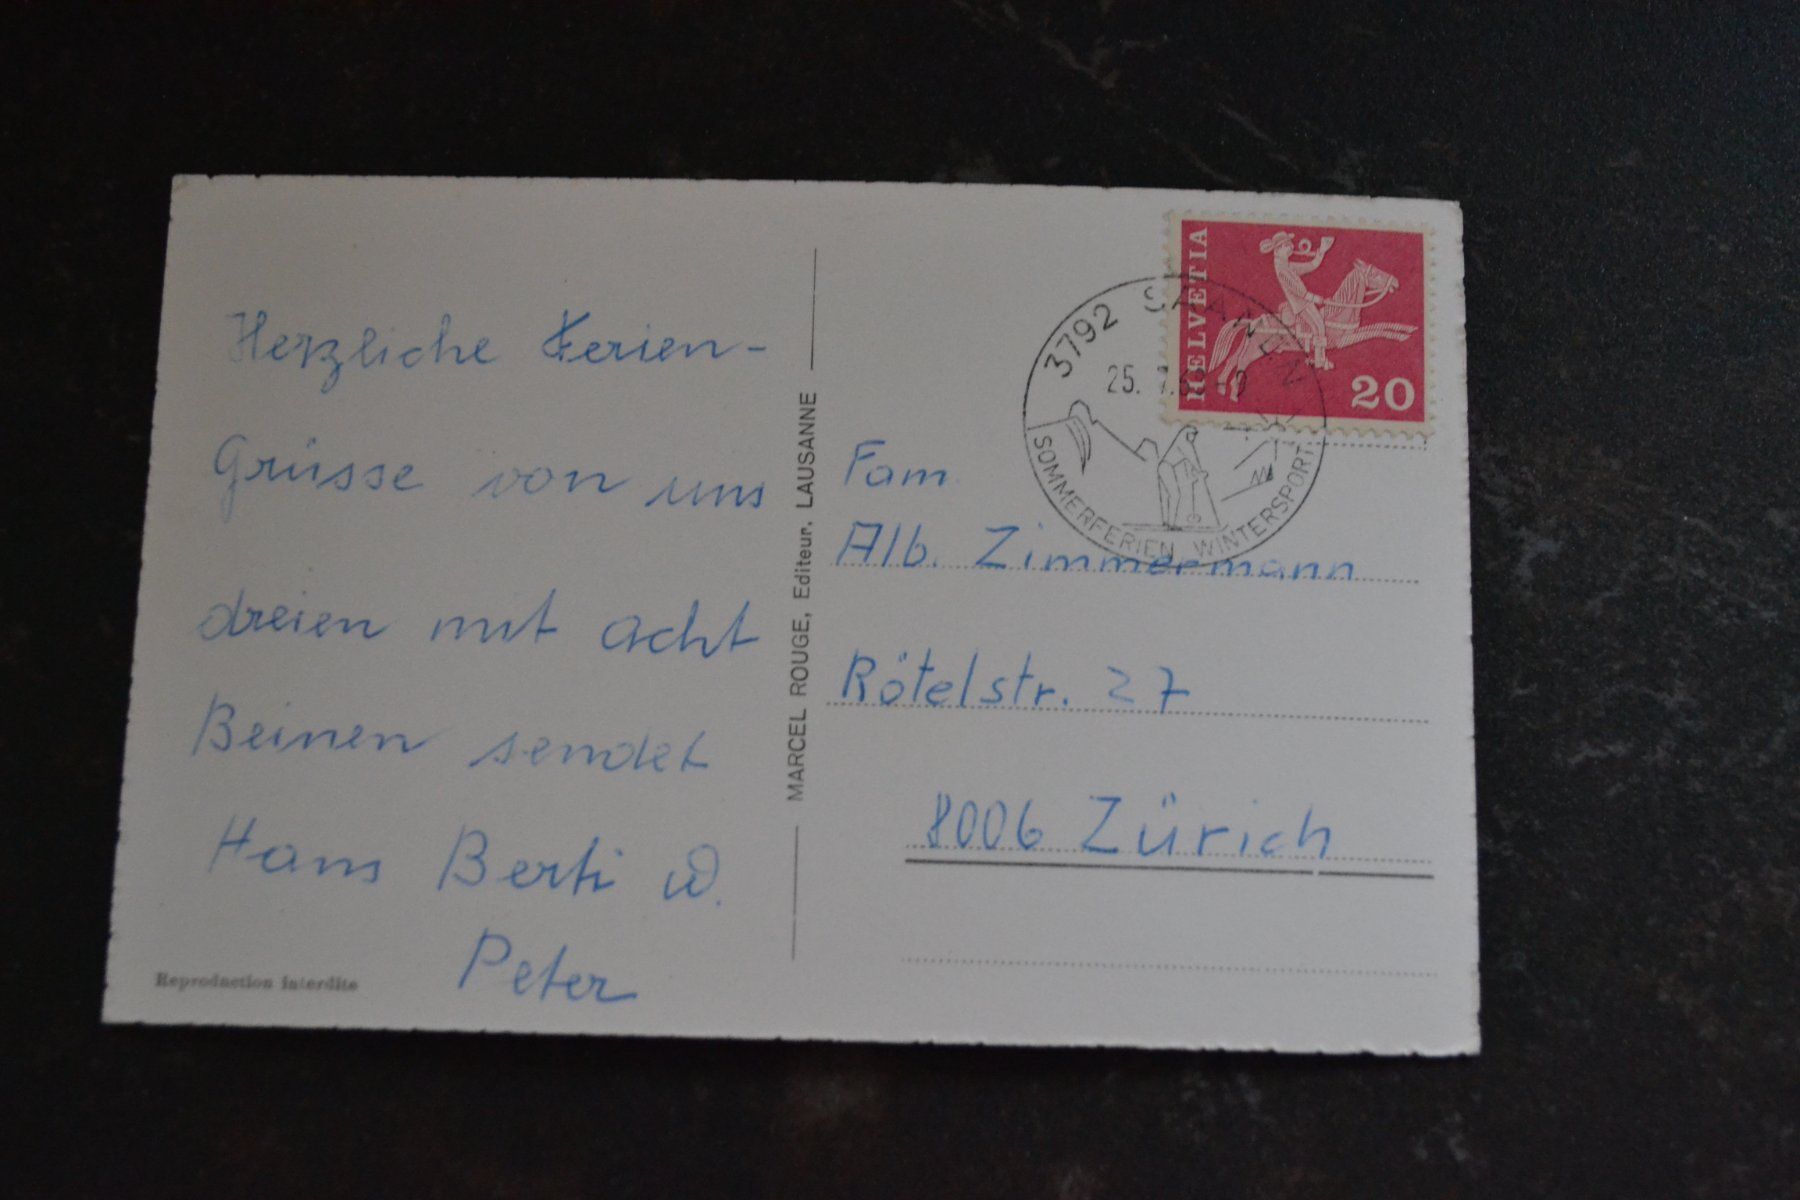 Herzliche Ferien-
Grüsse von uns
dreien mit acht
Beinen sendet
Hans Berti u.
Peter
Reproduction interdite
MARCEL ROUGE, Editeur. LAUSANNE
HELVETIA
20
3792 SAANEN
25. 7.
SOMMERFERIEN WINTERSPORT
Fam.
Alb. Zimmermann
Rötelstr. 27
8006 Zürich